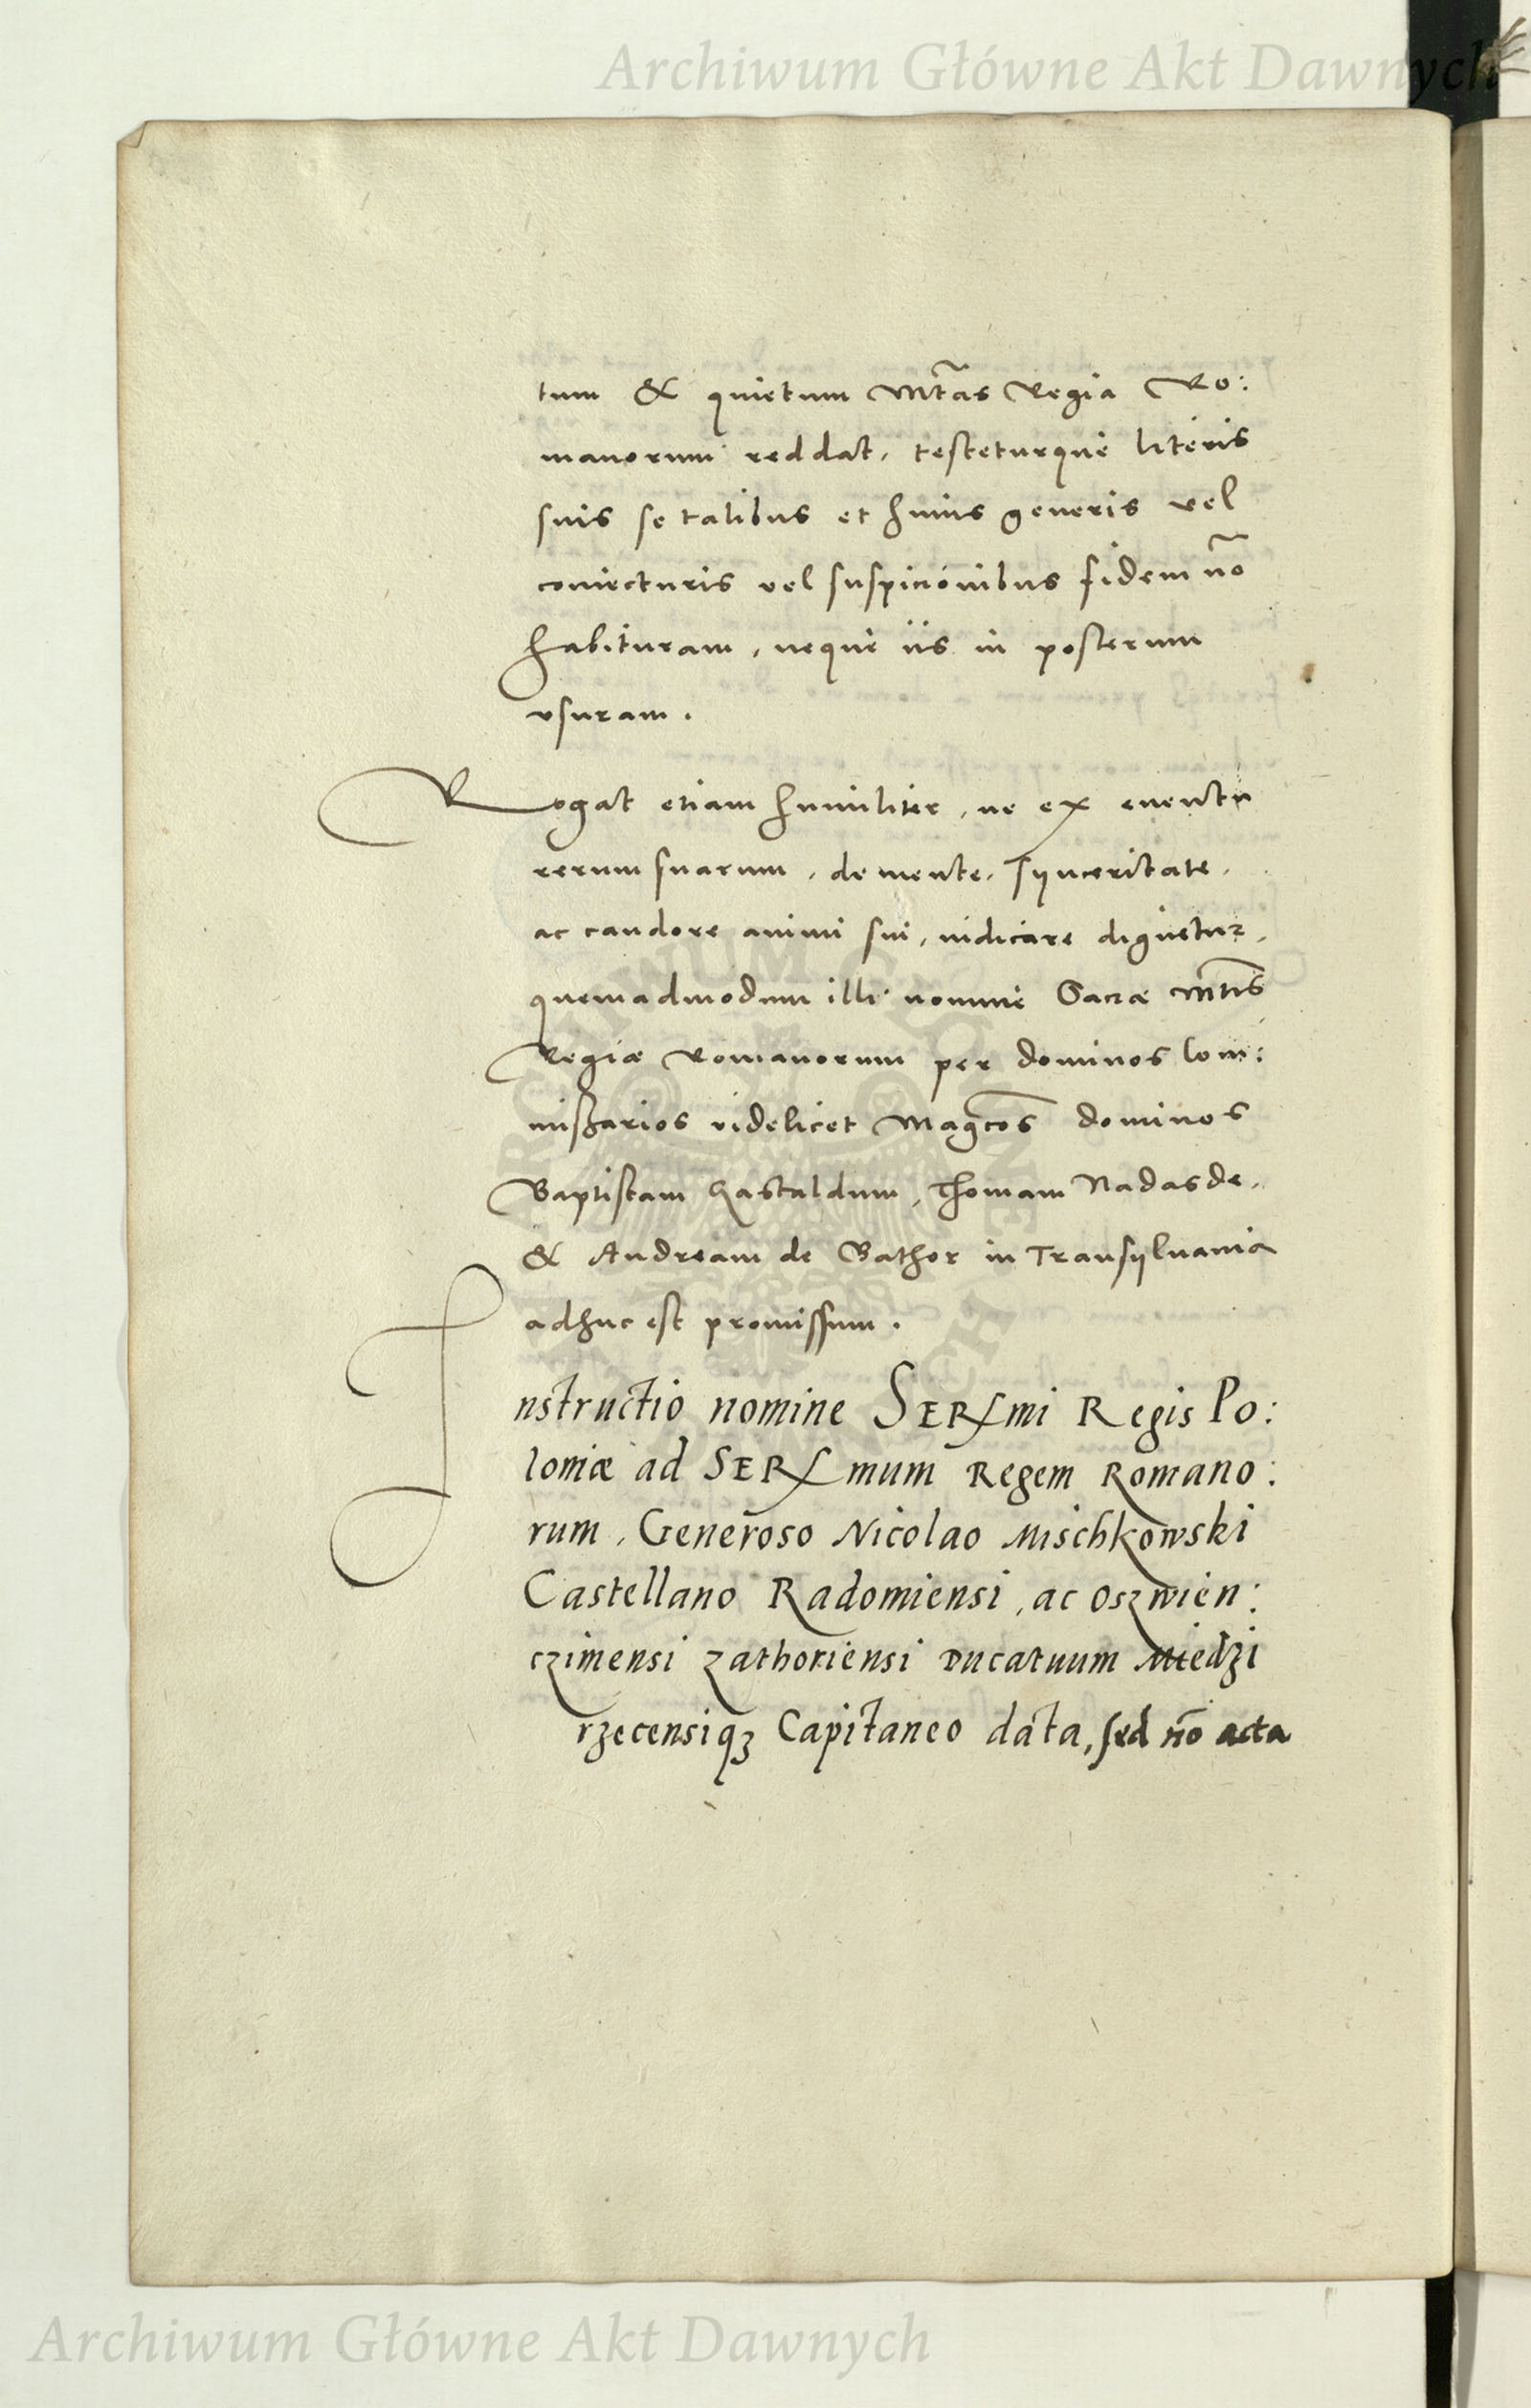 Archiwum Główne Akt Dawnych
tum & quietum Mtas Regia Ro:
manorum reddat, testeturque literis
suis se talibus et huius generis vel
coniecturis vel suspicionibus fidem no
habituram, neque iis in posterum
vsuram.
Rogat etiam humiliter, ne ex euentu
rerum suarum, de mente, synceritate,
ac candore animi sui, iudicare dignetur,
quemadmodum illi nomine Sacræ Mtis
Regiæ Romanorum per dominos Com:
mißarios videlicet Magcos dominos
Baptistam Castaldum, Thomam Nadasde,
& Andream de Bathor in Transylvania
adhuc est promissum.
Instructio nomine SERmi Regis Po:
loniæ ad SERmum Regem Romano:
rum, Generoso Nicolao Mischkowski
Castellano Radomiensi, ac Oszwien:
czimensi Zathoriensi Ducatuum Miedzi
rzecensiqz Capitaneo data, sed no acta
Archiwum Główne Akt Dawnych